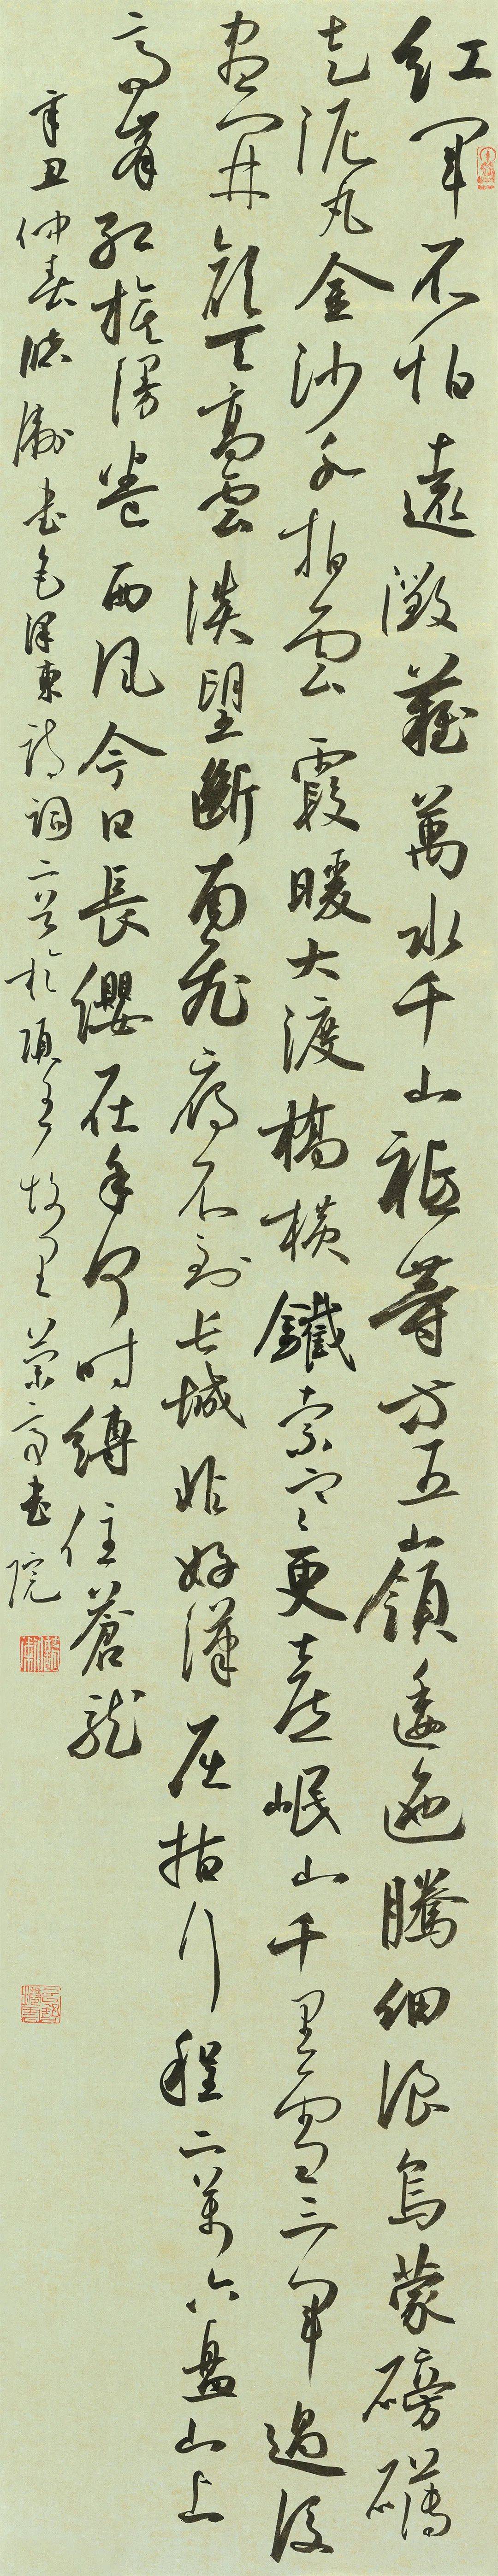 紅軍不怕遠徵難萬水千山祗等閒五嶺逶迤騰細浪烏蒙磅礴
走泥丸金沙水拍雲霞暖大渡橋橫鐵索寒更喜岷山千里雪三軍過後
盡開顏天高雲淡望斷南飛雁不到長城非好漢屈指行程二萬六盤山上
高峰紅旗漫卷西風今日長纓在手何時縛住蒼龍
辛丑仲春書毛澤東詩詞二首於項王故里榮高書院